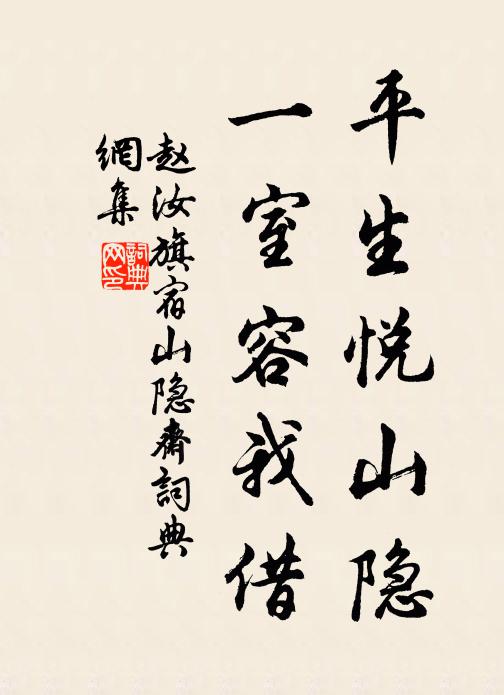 平生悦山隐
一室容我借
赵汝旗宿山隐斋詞典
網集
詞典网印